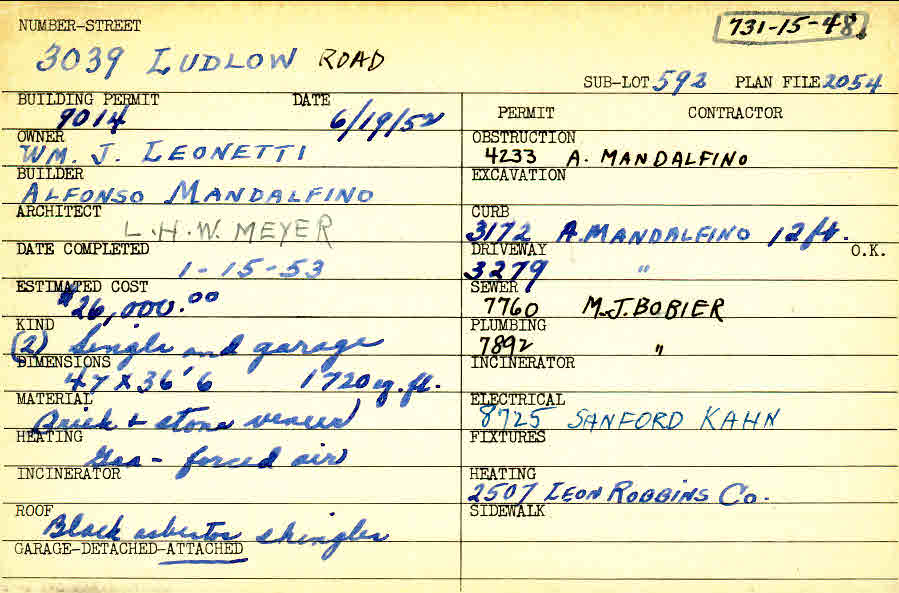 NUMBER-STREET
731-15-48
3039 LUDLOW ROAD
SUB-LOT 592 PLAN FILE 2054
BUILDING PERMIT DATE
9014 6/19/52
OWNER
WM. J. LEONETTI
BUILDER
ALFONSO MANDALFINO
ARCHITECT
L.H.W. MEYER
DATE COMPLETED
1-15-53
ESTIMATED COST
$26,000.00
KIND
(2) Single and garage
DIMENSIONS
47 x 36'6 1720 sq. ft.
MATERIAL
Brick & stone veneer
HEATING
Gas - forced air
INCINERATOR
ROOF
Black asbestos shingles
GARAGE-DETACHED-ATTACHED
PERMIT CONTRACTOR
OBSTRUCTION
4233 A. MANDALFINO
EXCAVATION
CURB
3172 A. MANDALFINO 12 ft.
DRIVEWAY O.K.
3279 "
SEWER
7760 M.J. BOBIER
PLUMBING
7892 "
INCINERATOR
ELECTRICAL
8725 SANFORD KAHN
FIXTURES
HEATING
2507 LEON ROBBINS Co.
SIDEWALK